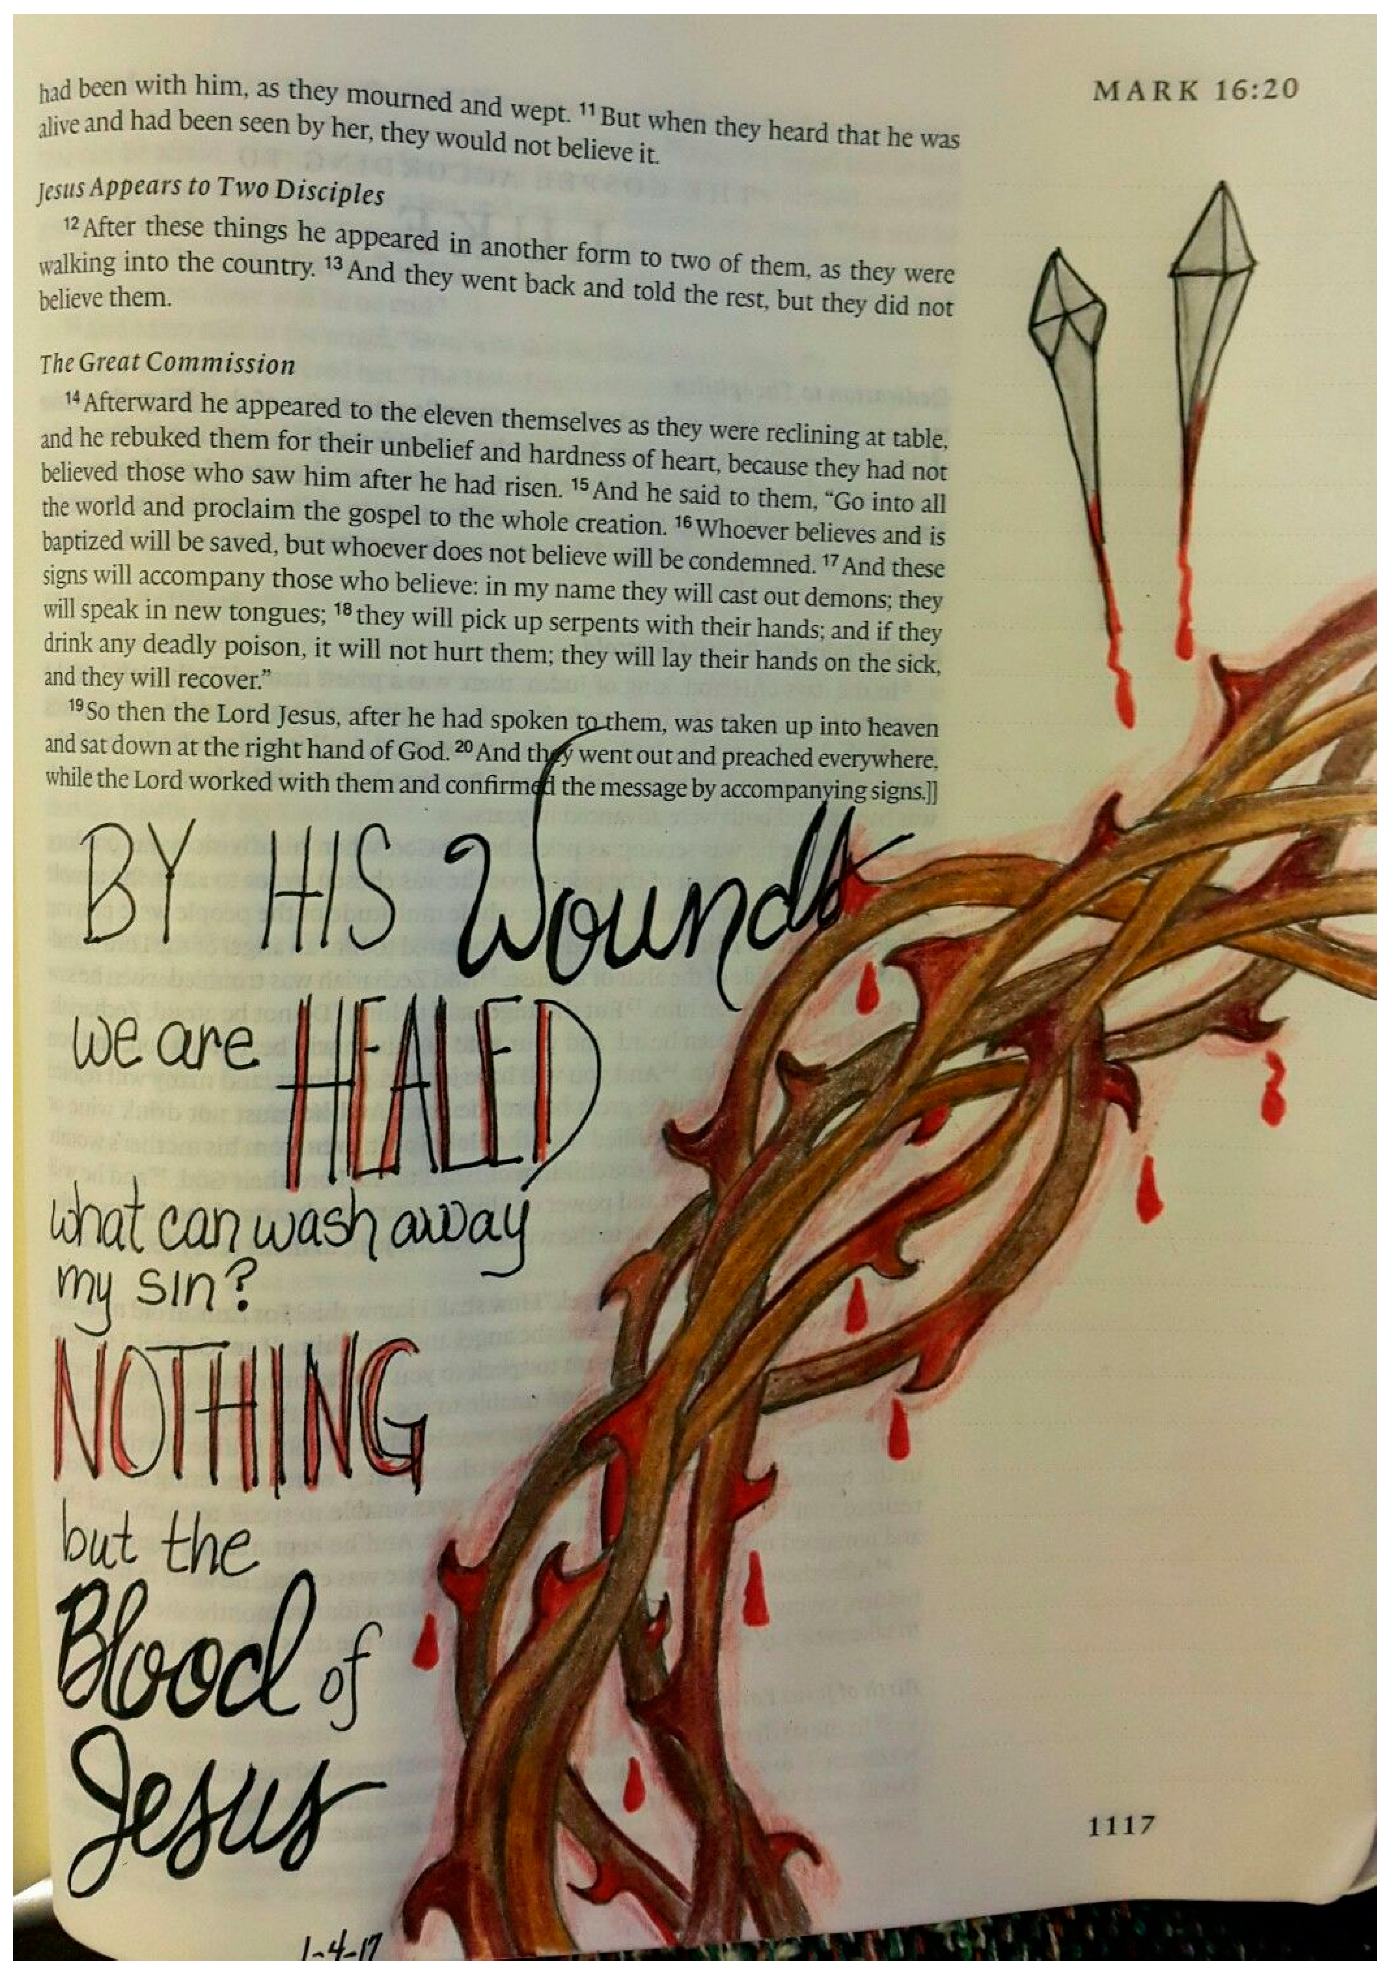 MARK 16:20
had been with him, as they mourned and wept. 11 But when they heard that he was
alive and had been seen by her, they would not believe it.
Jesus Appears to Two Disciples
12 After these things he appeared in another form to two of them, as they were
walking into the country. 13 And they went back and told the rest, but they did not
believe them.
The Great Commission
14 Afterward he appeared to the eleven themselves as they were reclining at table,
and he rebuked them for their unbelief and hardness of heart, because they had not
believed those who saw him after he had risen. 15 And he said to them, “Go into all
the world and proclaim the gospel to the whole creation. 16 Whoever believes and is
baptized will be saved, but whoever does not believe will be condemned. 17 And these
signs will accompany those who believe: in my name they will cast out demons; they
will speak in new tongues; 18 they will pick up serpents with their hands; and if they
drink any deadly poison, it will not hurt them; they will lay their hands on the sick,
and they will recover.”
19 So then the Lord Jesus, after he had spoken to them, was taken up into heaven
and sat down at the right hand of God. 20 And they went out and preached everywhere,
while the Lord worked with them and confirmed the message by accompanying signs.]]
BY HIS Wounds
we are HEALED
what can wash away
my sin?
NOTHING
but the
Blood of
Jesus
1117
1-4-17